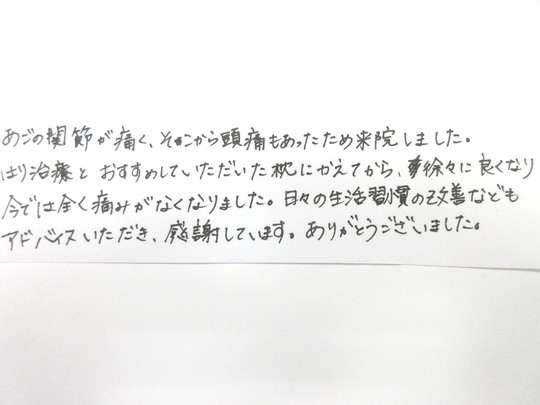 あごの関節が痛く、そこから頭痛もあったため来院しました。
はり治療と おすすめしていただいた枕にかえてから、徐々に良くなり
今では全く痛みがなくなりました。日々の生活習慣の改善なども
アドバイスいただき、感謝しています。ありがとうございました。